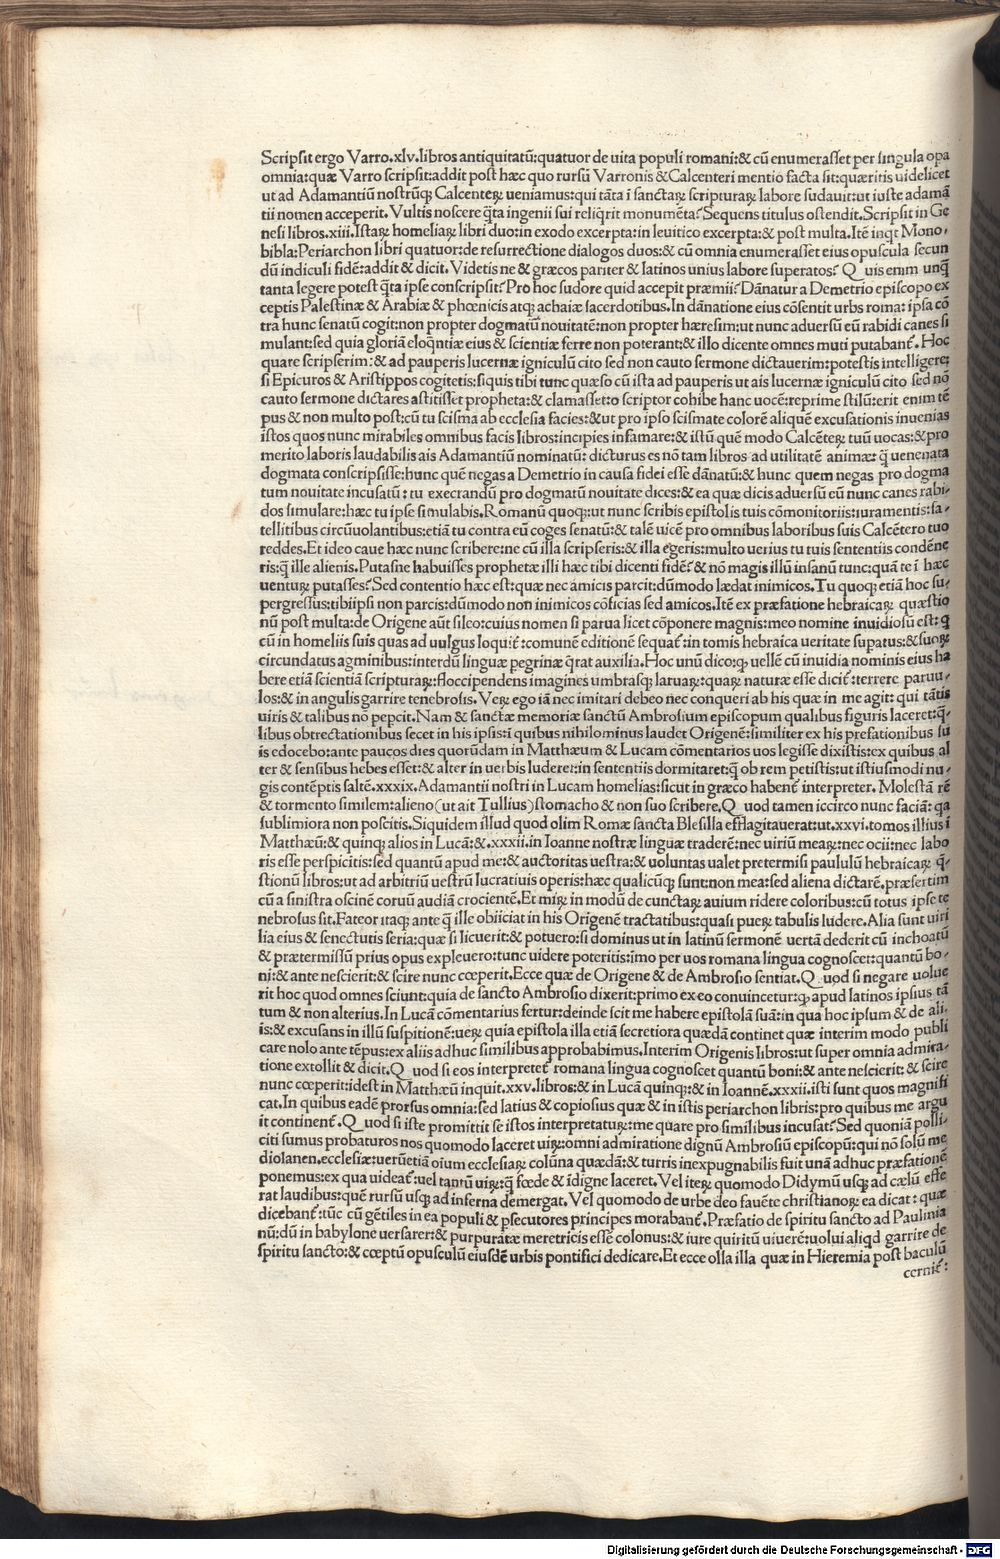 Scripsit ergo Varro.xlv.libros antiquitatū:quatuor de uita populi romani:& cū enumerasset per singula opa
omnia:quæ Varro scripsit:addit post hæc quo rursū Varronis & Calcenteri mentio facta sit:quæritis uidelicet
ut ad Adamantiū nostrūq; Calcenteꝝ ueniamus:qui tāta ī sanctaꝝ scripturaꝝ labore sudauit:ut iuste adamā
tii nomen acceperit.Vultis noscere q̄ta ingenii sui reliqrit monumēta?Sequens titulus ostendit.Scripsit in Ge
nesi libros.xiii.Istaꝝ homeliaꝝ libri duo:in exodo excerpta:in leuitico excerpta:& post multa.Itē inqt Mono-
bibla:Periarchon libri quatuor:de resurrectione dialogos duos:& cū omnia enumerasset eius opuscula secun
dū indiculi fidē:addit & dicit.Videtis ne & græcos pariter & latinos unius labore superatos? Q uis enim unq̄
tanta legere potest q̄ta ipse conscripsit?Pro hoc sudore quid accepit præmii?Dānatur a Demetrio episcopo ex
ceptis Palestinæ & Arabiæ & phœnicis atq; achaiæ sacerdotibus.In dānatione eius cōsentit urbs roma: ipsa cō
tra hunc senatū cogit:non propter dogmatū nouitatē:non propter hæresim:ut nunc aduersū eū rabidi canes si
mulant:sed quia gloriā eloq̄ntiæ eius & scientiæ ferre non poterant:& illo dicente omnes muti putabant̄. Hoc
quare scripserim:& ad pauperis lucernæ igniculū cito sed non cauto sermone dictauerim:potestis intelligere:
si Epicuros & Aristippos cogitetis:siquis tibi tunc quæso cū ista ad pauperis ut ais lucernæ igniculū cito sed nō
cauto sermone dictares astitisset propheta:& clamasset:o scriptor cohibe hanc uocē:reprime stilū:erit enim tē
pus & non multo post:cū tu scisma ab ecclesia facies:&ut pro ipso scismate colorē aliquē excusationis inuenias
istos quos nunc mirabiles omnibus facis libros:incipies infamare:& istū quē modo Calcēteꝝ tuū uocas:&pro
merito laboris laudabilis ais Adamantiū nominatū: dicturus es nō tam libros ad utilitatē animæ: q̄ uenenata
dogmata conscripsisse:hunc quē negas a Demetrio in causa fidei esse dānatū:& hunc quem negas pro dogma
tum nouitate incusatū: tu execrandū pro dogmatū nouitate dices:& ea quæ dicis aduersū eū nunc canes rabi-
dos simulare:hæc tu ipse simulabis.Romanū quoq;:ut nunc scribis epistolis tuis cōmonitoriis:iuramentis:sa-
tellitibus circūuolantibus:etiā tu contra eū coges senatū:& talē uicē pro omnibus laboribus suis Calcētero tuo
reddes.Et ideo caue hæc nunc scribere:ne cū illa scripseris:& illa egeris:multo uerius tu tuis sententiis condēne
ris:q̄ ille alienis.Putasne habuisses prophetæ illi hæc tibi dicenti fidē?& nō magis illū insanū tunc:quā te ī hæc
uentuꝝ putasses?Sed contentio hæc est:quæ nec amicis parcit:dūmodo lædat inimicos.Tu quoq; etiā hoc su-
pergressus:tibiipsi non parcis:dūmodo non inimicos cōficias sed amicos.Itē ex præfatione hebraicaꝝ quæstio
nū post multa:de Origene aūt sileo:cuius nomen si parua licet cōponere magnis:meo nomine inuidiosū est: q
cū in homeliis suis quas ad uulgus loquit̄ :comunē editionē sequat̄ :in tomis hebraica ueritate supatus:& suoꝝ
circundatus agminibus:interdū linguæ pegrinæ q̄rat auxilia.Hoc unū dico:q; uellē cū inuidia nominis eius ha
bere etiā scientiā scripturaꝝ:floccipendens imagines umbrasq; laruaꝝ:quaꝝ naturæ esse dicit̄ :terrere paruu-
los:& in angulis garrire tenebrosis. Veꝝ ego iā nec imitari debeo nec conqueri ab his quæ in me agit: qui tātis
uiris & talibus nō pepcit. Nam & sanctæ memoriæ sanctū Ambrosium episcopum qualibus figuris laceret:q̄-
libus obtrectationibus secet in his ipsis:ī quibus nihilominus laudet Origenē:similiter ex his prefationibus su
is edocebo:ante paucos dies quorūdam in Matthæum & Lucam cōmentarios uos legisse dixistis:ex quibus al
ter & sensibus hebes esset:& alter in uerbis luderet:in sententiis dormitaret:q̄ ob rem petistis:ut istiusmodi nu-
gis contēptis saltē.xxxix.Adamantii nostri in Lucam homelias:sicut in græco habent̄ interpreter. Molestā rē
& tormento similem:alieno(ut ait Tullius)stomacho & non suo scribere.Q uod tamen iccirco nunc faciā: qa
sublimiora non poscitis.Siquidem illud quod olim Romæ sancta Blesilla efflagitauerat:ut.xxvi.tomos illius ī
Matthæū:& quinq; alios in Lucā:&.xxxii.in Ioanne nostræ linguæ traderē:nec uiriū meaꝝ:nec ocii:nec labo
ris esse perspicitis:sed quantū apud me:& auctoritas uestra:& uoluntas ualet pretermisi paululū hebraicaꝝ q̄-
stionū libros:ut ad arbitriū uestrū lucratiuis operis:hæc qualicūq; sunt:non mea:sed aliena dictarē.præsertim
cū a sinistra oscinē coruū audiā crocientē.Et miꝝ in modū de cunctaꝝ auium ridere coloribus:cū totus ipse te
nebrosus sit.Fateor itaq; ante q̄ ille obiiciat in his Origenē tractatibus:quasi pueꝝ tabulis ludere.Alia sunt uiri
lia eius & senectutis seria:quæ si licuerit:& potuero:si dominus ut in latinū sermonē uertā dederit cū inchoatū
& prætermissū prius opus expleuero:tunc uidere poteritis:imo per uos romana lingua cognoscet:quantū bo-
ni:& ante nescierit:& scire nunc cœperit.Ecce quæ de Origene & de Ambrosio sentiat.Q uod si negare uolue
rit hoc quod omnes sciunt:quia de sancto Ambrosio dixerit:primo ex eo conuincetur:q; apud latinos ipsius tā
tum & non alterius.In Lucā cōmentarius fertur:deinde scit me habere epistolā suā:in qua hoc ipsum & de ali-
is:& excusans in illū suspitionē:ueꝝ quia epistola illa etiā secretiora quædā continet quæ interim modo publi
care nolo ante tēpus:ex aliis adhuc similibus approbabimus.Interim Origenis libros:ut super omnia admira-
tione extollit & dicit.Q uod si eos interpretet̄ romana lingua cognoscet quantū boni:& ante nescierit:& scire
nunc cœperit:idest in Matthæū inquit.xxv.libros:& in Lucā quinq;:& in Ioannē.xxxii.isti sunt quos magnifi
cat.In quibus eadē prorsus omnia:sed latius & copiosius quæ & in istis periarchon libris:pro quibus me argu
it continent̄.Q uod si iste promittit se istos interpretatuꝝ:me quare pro similibus incusat?Sed quoniā polli-
citi sumus probaturos nos quomodo laceret uiꝝ:omni admiratione dignū Ambrosiū episcopū:qui nō solū me
diolanen.ecclesiæ:ueruetiā oium ecclesiaꝝ colūna quædā:& turris inexpugnabilis fuit unā adhuc præfationē
ponemus:ex qua uideat̄:uel tantū uiꝝ:q̄ fœde & īdigne laceret. Vel iteꝝ quomodo Didymū usq; ad cælū effe
rat laudibus:quē rursū usq; ad inferna demergat. Vel quomodo de urbe deo fauēte christianoꝝ ea dicat: quæ
dicebant̄:tūc cū gētiles in ea populi & psecutores principes morabant̄. Præfatio de spiritu sancto ad Paulinia
nū:dū in babylone uersarer:& purpuratæ meretricis essē colonus:& iure quiritū uiuerē:uolui aliqd garrire de
spiritu sancto:& cœptū opusculū eiusdē urbis pontifici dedicare.Et ecce olla illa quæ in Hieremia post baculū
cernit̄:
Digitalisierung gefördert durch die Deutsche Forschungsgemeinschaft - DFG